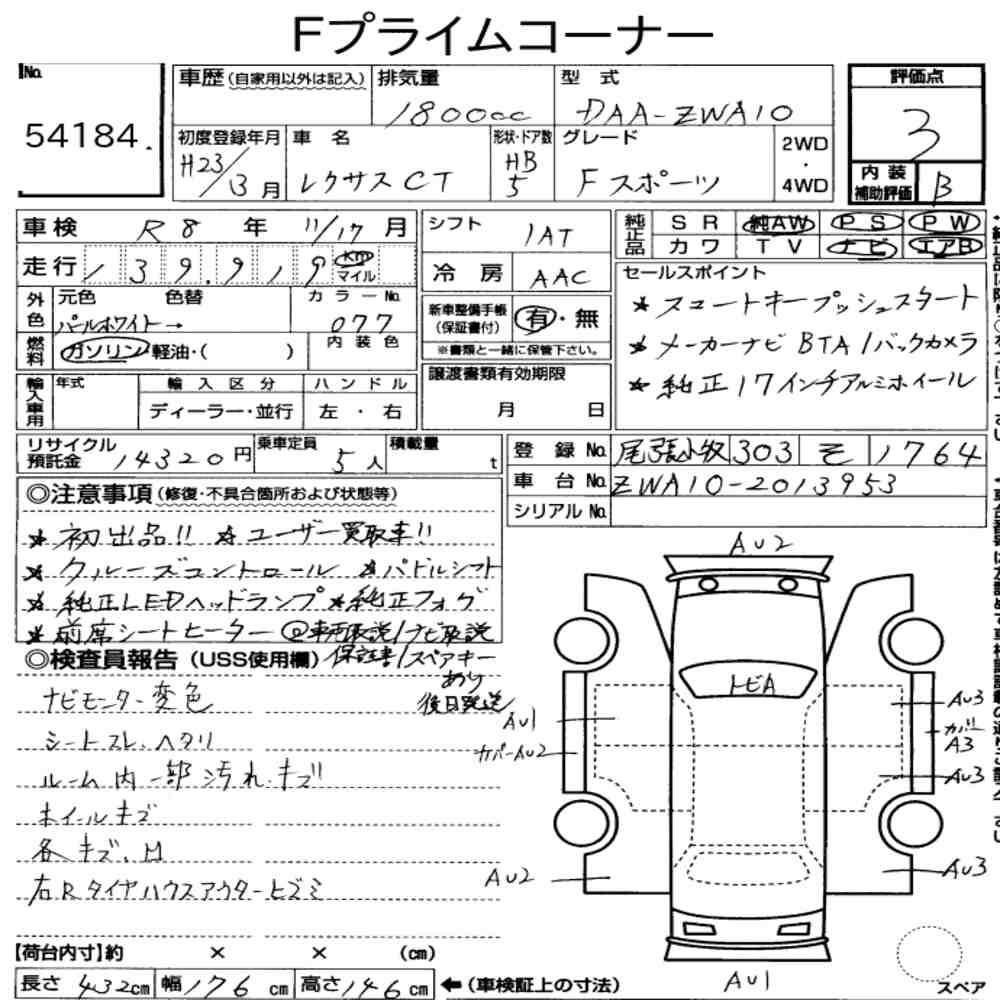 Fプライムコーナー
No.
54184.
車歴(自家用以外は記入)
排気量
1800cc
型 式
DAA-ZWA10
評価点
3
初度登録年月
H23/3月
車 名
レクサスCT
形状・ドア数
HB
5
グレード
Fスポーツ
2WD
・
4WD
内 装
補助評価
B
車検 R8 年 11/17 月
走行 139.919 km
マイル
外色
元色 色替
パールホワイト→
カラーNo.
077
燃料
ガソリン・軽油・( )
内 装 色
輸入車用
年式
輸 入 区 分
ディーラー・並行
ハ ン ド ル
左 ・ 右
シフト
1AT
冷 房
AAC
新車整備手帳
(保証書付)
有・無
※書類と一緒に保管下さい。
譲渡書類有効期限
月 日
純正品
SR 純AW PS PW
カワ TV ナビ エアB
セールスポイント
★ スマートキープッシュスタート
★ メーカーナビ BTA/バックカメラ
★ 純正17インチアルミホイール
リサイクル
預託金
14320円
乗車定員
5人
積載量
t
登 録 No.
尾張小牧 303 そ 1764
車 台 No.
ZWA10-2013953
シリアル No.
◎注意事項(修復・不具合箇所および状態等)
★ 初出品!! ★ユーザー買取車!!
★ クルーズコントロール ★パドルシフト
★ 純正LEDヘッドランプ ★純正フォグ
★ 前席シートヒーター @車両取説/ナビ取説
保証書/スペアキー
あり
後日発送
◎検査員報告(USS使用欄)
ナビモニター変色
シートスレ、ヘタリ
ルーム内一部汚れ・キズ
ホイールキズ
各キズ、凹
右Rタイヤハウスアウターヒズミ
AU2
トビA
AU1
カバーAU2
AU2
AU3
カバー
A3
AU3
AU3
AU1
スペア
【荷台内寸】約 × × (cm)
長さ 432cm 幅 176cm 高さ 146cm
←(車検証上の寸法)